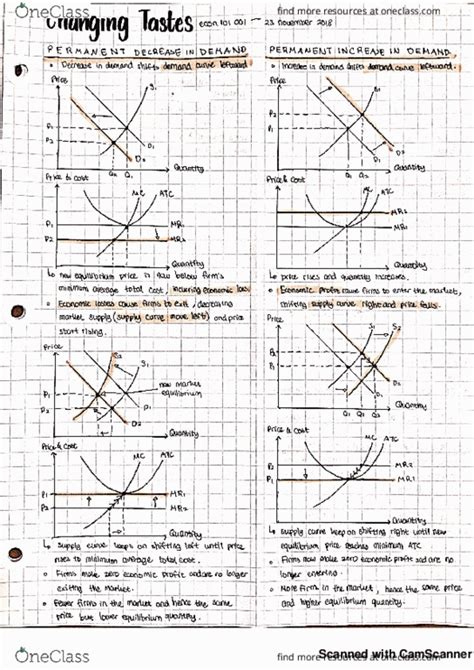 OneClass
find more resources at oneclass.com
Changing Tastes
econ 101 001 — 23 november 2018
find more resources at oneclass.com
PERMANENT DECREASE IN DEMAND
Decrease in demand shifts demand curve leftward.
Price
S1
P1
P2
D1
D2
Q2 Q1
Quantity
Price & cost
MC
ATC
P1
MR1
P2
MR2
Quantity
new equilibrium price is now below firm's
minimum average total cost, incurring economic loss
Economic losses cause firms to exit, decreasing
market supply (supply curve move left) and price
start rising.
Price
S2
S1
P1
new market
equilibrium
P2
D1
D2
Quantity
Price & cost
MC
ATC
P1
MR1
P2
MR2
Quantity
supply curve keeps on shifting left until price
rises to minimum average total cost.
Firms make zero economic profit and are no longer
exiting the market.
Fewer firms in the market and hence the same
price but lower equilibrium quantity.
PERMANENT INCREASE IN DEMAND
Increase in demand shifts demand curve leftward.
Price
S1
P2
P1
D1
D2
Quantity
Price & cost
MC
ATC
MR2
MR1
Quantity
price rises and quantity increases.
Economic profits cause firms to enter the market,
shifting supply curve right and price falls.
Price
S1
S2
P2
P1
D2
D1
Q1 Q2 Q3
Quantity
Price & cost
MC
ATC
P2
MR2
P1
MR1
Quantity
supply curve keep on shifting right until new
equilibrium price reaches minimum ATC
Firms now make zero economic profit and are no
longer entering.
More firm in the market, hence the same price
and higher equilibrium quantity.
OneClass
find more resources at oneclass.com
Scanned with CamScanner